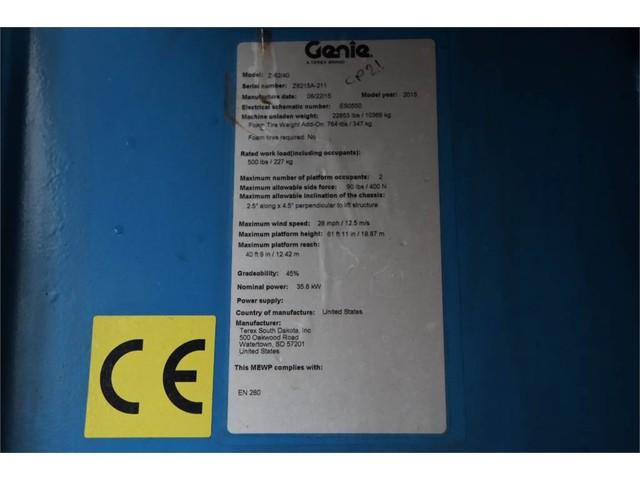 Genie
A TEREX BRAND
CP21
Model: Z-62/40
Serial number: Z6215A-211
Manufacture date: 06/22/15 Model year: 2015
Electrical schematic number: ES0550
Machine unladen weight: 22853 lbs / 10366 kg
Foam Tire Weight Add-On: 764 lbs / 347 kg
Foam tires required: No
Rated work load(including occupants):
500 lbs / 227 kg
Maximum number of platform occupants: 2
Maximum allowable side force: 90 lbs / 400 N
Maximum allowable inclination of the chassis:
2.5° along x 4.5° perpendicular to lift structure
Maximum wind speed: 28 mph / 12.5 m/s
Maximum platform height: 61 ft 11 in / 18.87 m
Maximum platform reach:
40 ft 9 in / 12.42 m
Gradeability: 45%
Nominal power: 35.8 kW
Power supply:
Country of manufacture: United States
Manufacturer:
Terex South Dakota, Inc
500 Oakwood Road
Watertown, SD 57201
United States
This MEWP complies with:
EN 280
CE